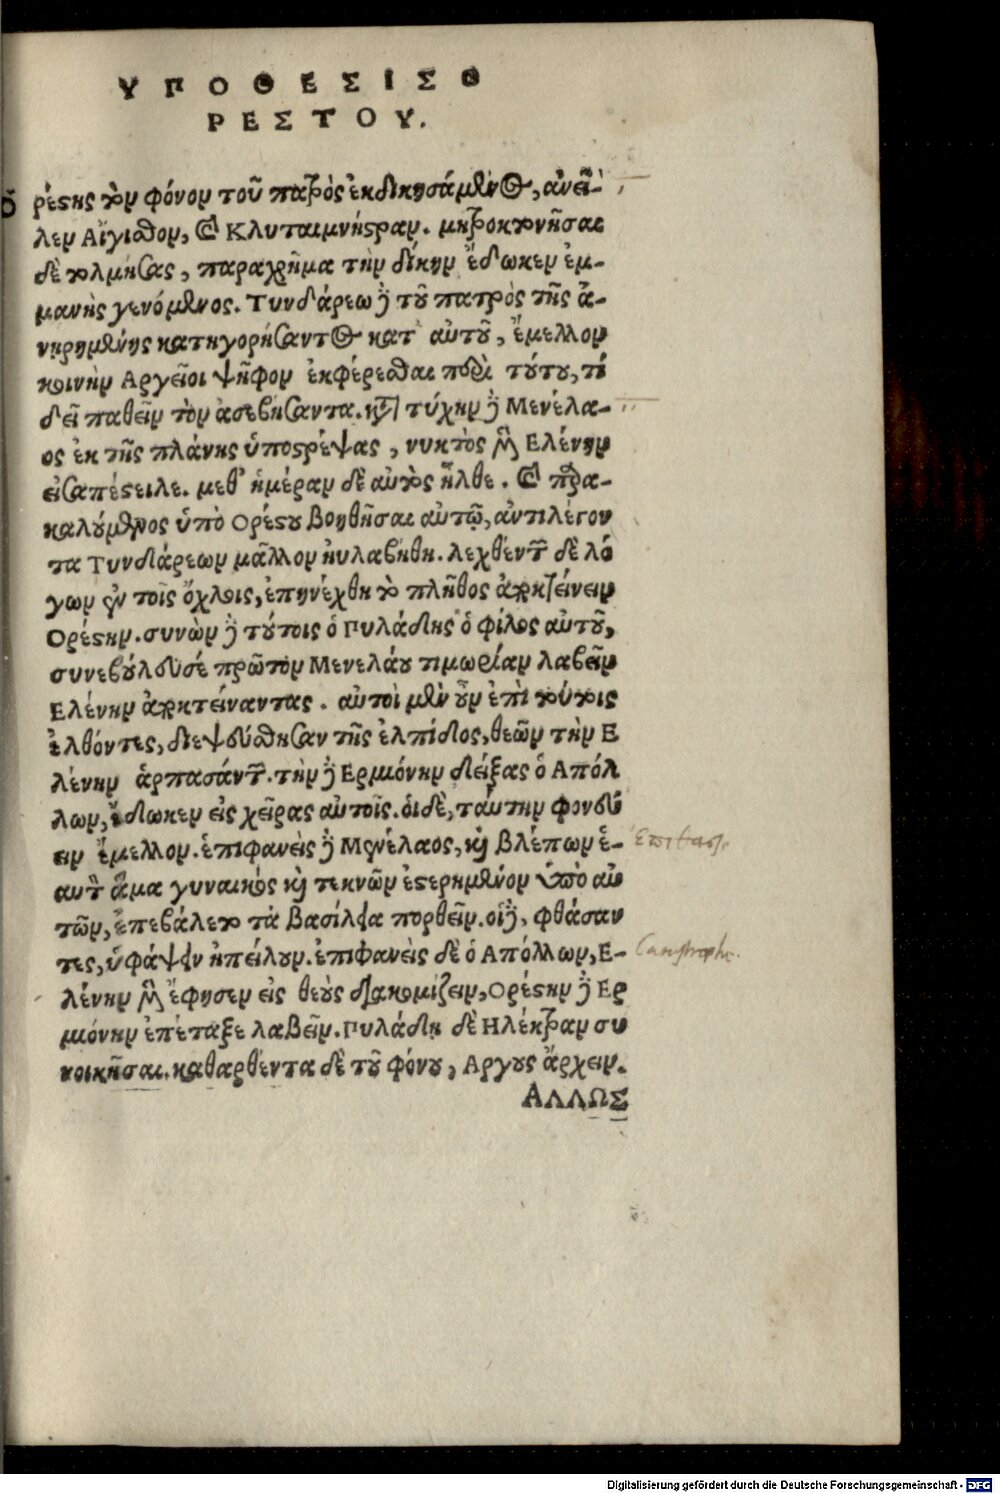 ΥΠΟΘΕΣΙΣ Ο
ΡΕΣΤΟΥ.
Ὀ ρέϛης τὸν φόνον τοῦ πατρὸς ἐκδικησάμενος, ἀνεῖ-
λεν Αἴγισθον, καὶ Κλυταιμνήϛραν. μητροκτονῆσαι
δὲ τολμήσας, παραχρῆμα τὴν δίκην ἔδωκεν ἐμ-
μανὴς γενόμενος. Τυνδάρεω δὲ τοῦ πατρὸς τῆς ἀ-
νηρημένης κατηγορήσαντος κατ' αὐτοῦ, ἔμελλον
κοινὴν Αργεῖοι ψῆφον ἐκφέρεσθαι περὶ τούτου, τί
δεῖ παθεῖν τὸν ἀσεβήσαντα. κατὰ τύχην δὲ Μενέλα-
ος ἐκ τῆς πλάνης ὑποϛρέψας, νυκτὸς μὲν Ελένην
εἰσαπέϛειλε. μεθ' ἡμέραν δὲ αὐτὸς ἦλθε. καὶ παρα-
καλούμενος ὑπὸ Ορέϛου βοηθῆσαι αὐτῷ, ἀντιλέγον
τα Τυνδάρεων μᾶλλον ηυλαβήθη. λεχθέντων δὲ λό
γων ἐν τοῖς ὄχλοις, ἐπηνέχθη τὸ πλῆθος ἀποκτείνειν
Ορέϛην. συνὼν δὲ τούτοις ὁ Πυλάδης ὁ φίλος αὐτοῦ,
συνεβούλευσε πρῶτον Μενελάου τιμωρίαν λαβεῖν
Ελένην ἀποκτείναντας. αὐτοὶ μὲν οὖν ἐπὶ τούτοις
ἐλθόντες, διεψεύσθησαν τῆς ἐλπίδος, θεῶν τὴν Ε
λένην ἁρπασάντων. τὴν δὲ Ερμιόνην δείξας ὁ Απόλ
λων, ἔδωκεν εἰς χεῖρας αὐτοῖς. οἱ δὲ, ταύτην φονεύ
ειν ἔμελλον. ἐπιφανεὶς δὲ Μενέλαος, καὶ βλέπων ἑ-
αυτὸν ἅμα γυναικὸς καὶ τεκνῶν ἐϛερημένον ὑπὸ αὐ
τῶν, ἐπεβάλετο τὰ βασίλεια πορθεῖν. οἱ δὲ, φθάσαν
τες, ὑφάψειν ἠπείλουν. ἐπιφανεὶς δὲ ὁ Απόλλων, Ε-
λένην μὲν ἔφησεν εἰς θεοὺς διακομίζειν, Ορέϛην δὲ Ερ
μιόνην ἐπέταξε λαβεῖν. Πυλάδῃ δὲ Ηλέκτραν συ
νοικῆσαι. καθαρθέντα δὲ τοῦ φόνου, Αργους ἄρχειν.
ΑΛΛΩΣ
Catastrophe.
Digitalisierung gefördert durch die Deutsche Forschungsgemeinschaft - DFG